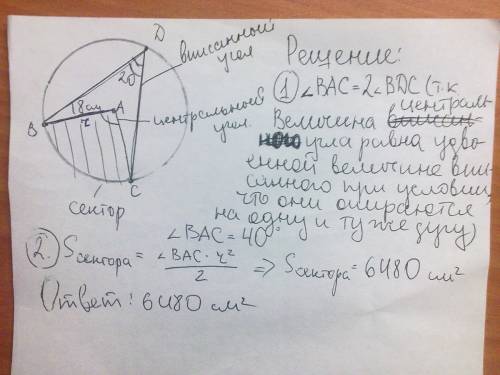 D
вписанный
угол
20°
18 см
A
r
B
центральный
угол.
C
сектор
Решение:
① ∠BAC = 2∠BDC (т.к
Величина централь
ного угла равна удво
енной величине впи
санного при условии,
что они опираются
на одну и ту же дугу)
∠BAC = 40°
2. Sсектора = ∠BAC · r² / 2 => Sсектора = 6480 см²
Ответ: 6480 см²